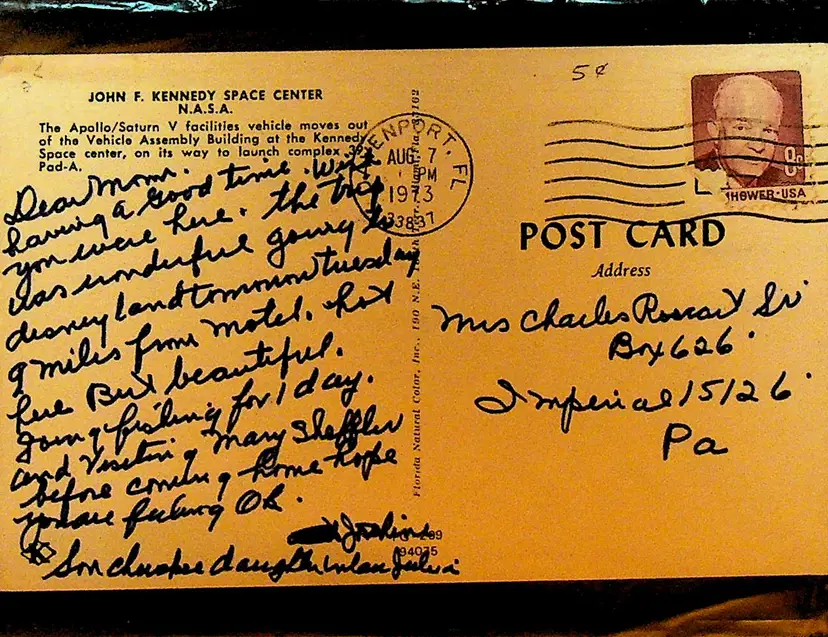 5¢
JOHN F. KENNEDY SPACE CENTER
N.A.S.A.
The Apollo/Saturn V facilities vehicle moves out
of the Vehicle Assembly Building at the Kennedy
Space center, on its way to launch complex 39,
Pad-A.
ENPORT, FL
AUG 7
PM
1973
33837
8¢
HOWER·USA
Dear Mom.
having a Good time. Wish
you were here. the trip
was wonderful going to
disney land tomorrow tuesday
9 miles from motel. hot
here But beautiful.
Going fishing for 1 day.
and Visiting Mary Sheffler
before coming home hope
you are feeling OK.
Son daughter in law
94035
Florida Natural Color, Inc., 190 N.E.
33162
POST CARD
Address
Mrs Charles Sr
Box 626
Imperial 15126
Pa